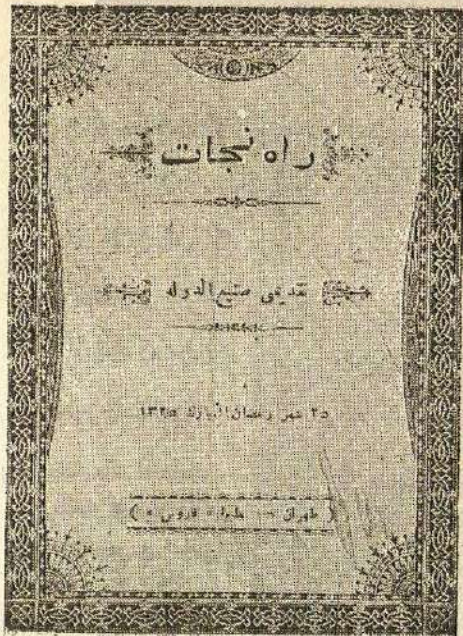 راه نجات
تقدیمی صنیع الدوله
۲۵ شهر رمضان المبارک ۱۳۲۵
( طهران — مطبعه فاروس )